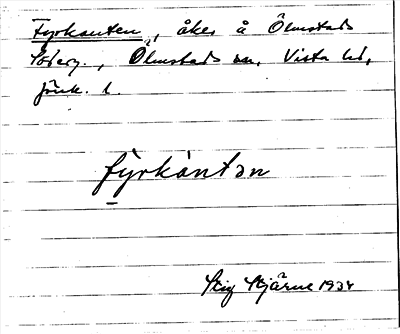 Fyrkanten, åker å Ölmstads
Östarg., Ölmstads sn, Vista hd,
Jönk. l.
fyrkantən
Stig Stjärne 1934